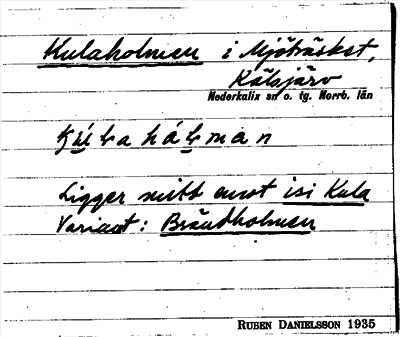 Kulaholmen i Mjöträsket,
Kälsjärv
Nederkalix sn o. tg. Norrb. län
Ligger mitt emot isi Kula
Variant: Brändholmen
RUBEN DANIELSSON 1935